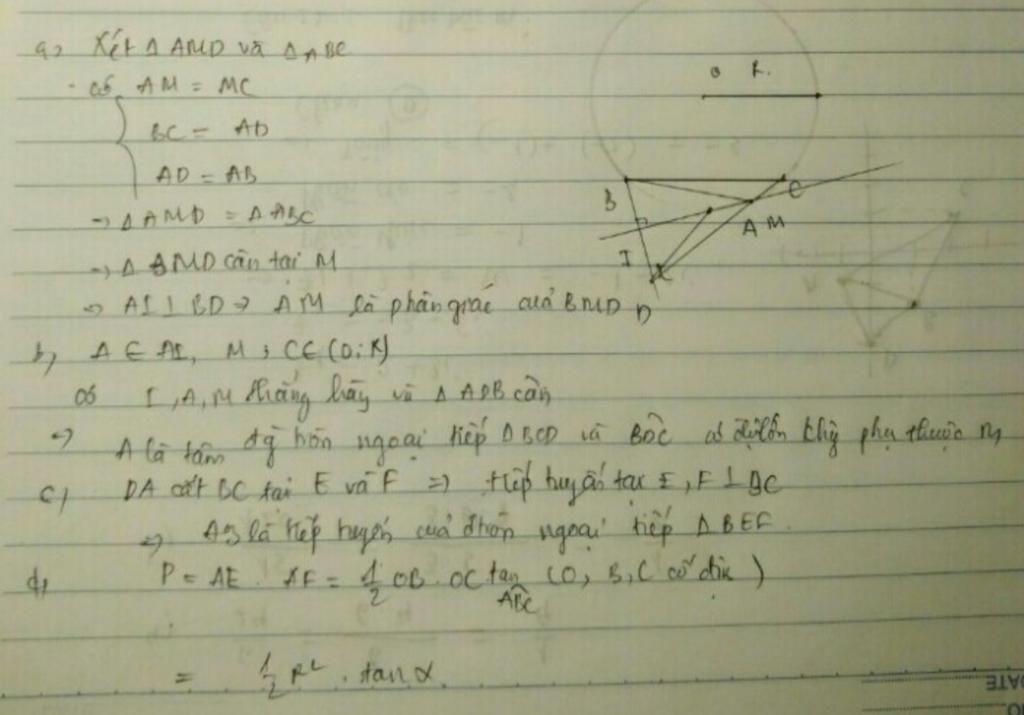 a, Xét Δ AMD và Δ ABC
có AM = MC
BC = AD
AD = AB
→ Δ AMD = Δ ABC
→ Δ BMD cân tại M
→ AI ⊥ BD → AM là phân giác của BMD
b, A ∈ AI, M, C ∈ (O; R)
có I, A, M thẳng hàng và Δ ADB cân
→ A là tâm đg tròn ngoại tiếp Δ BCD và BDC có độ lớn phụ thuộc M
c, DA cắt BC tại E và F => tiếp tuyến tại E, F ⊥ BC
=> AB là tiếp tuyến của đtròn ngoại tiếp Δ BEF.
d, P = AE . AF = 1/2 OB . OC tan ABC (O, B, C cố định)
= 1/2 R² . tan α
O R.
B
C
A M
I
D
DATE